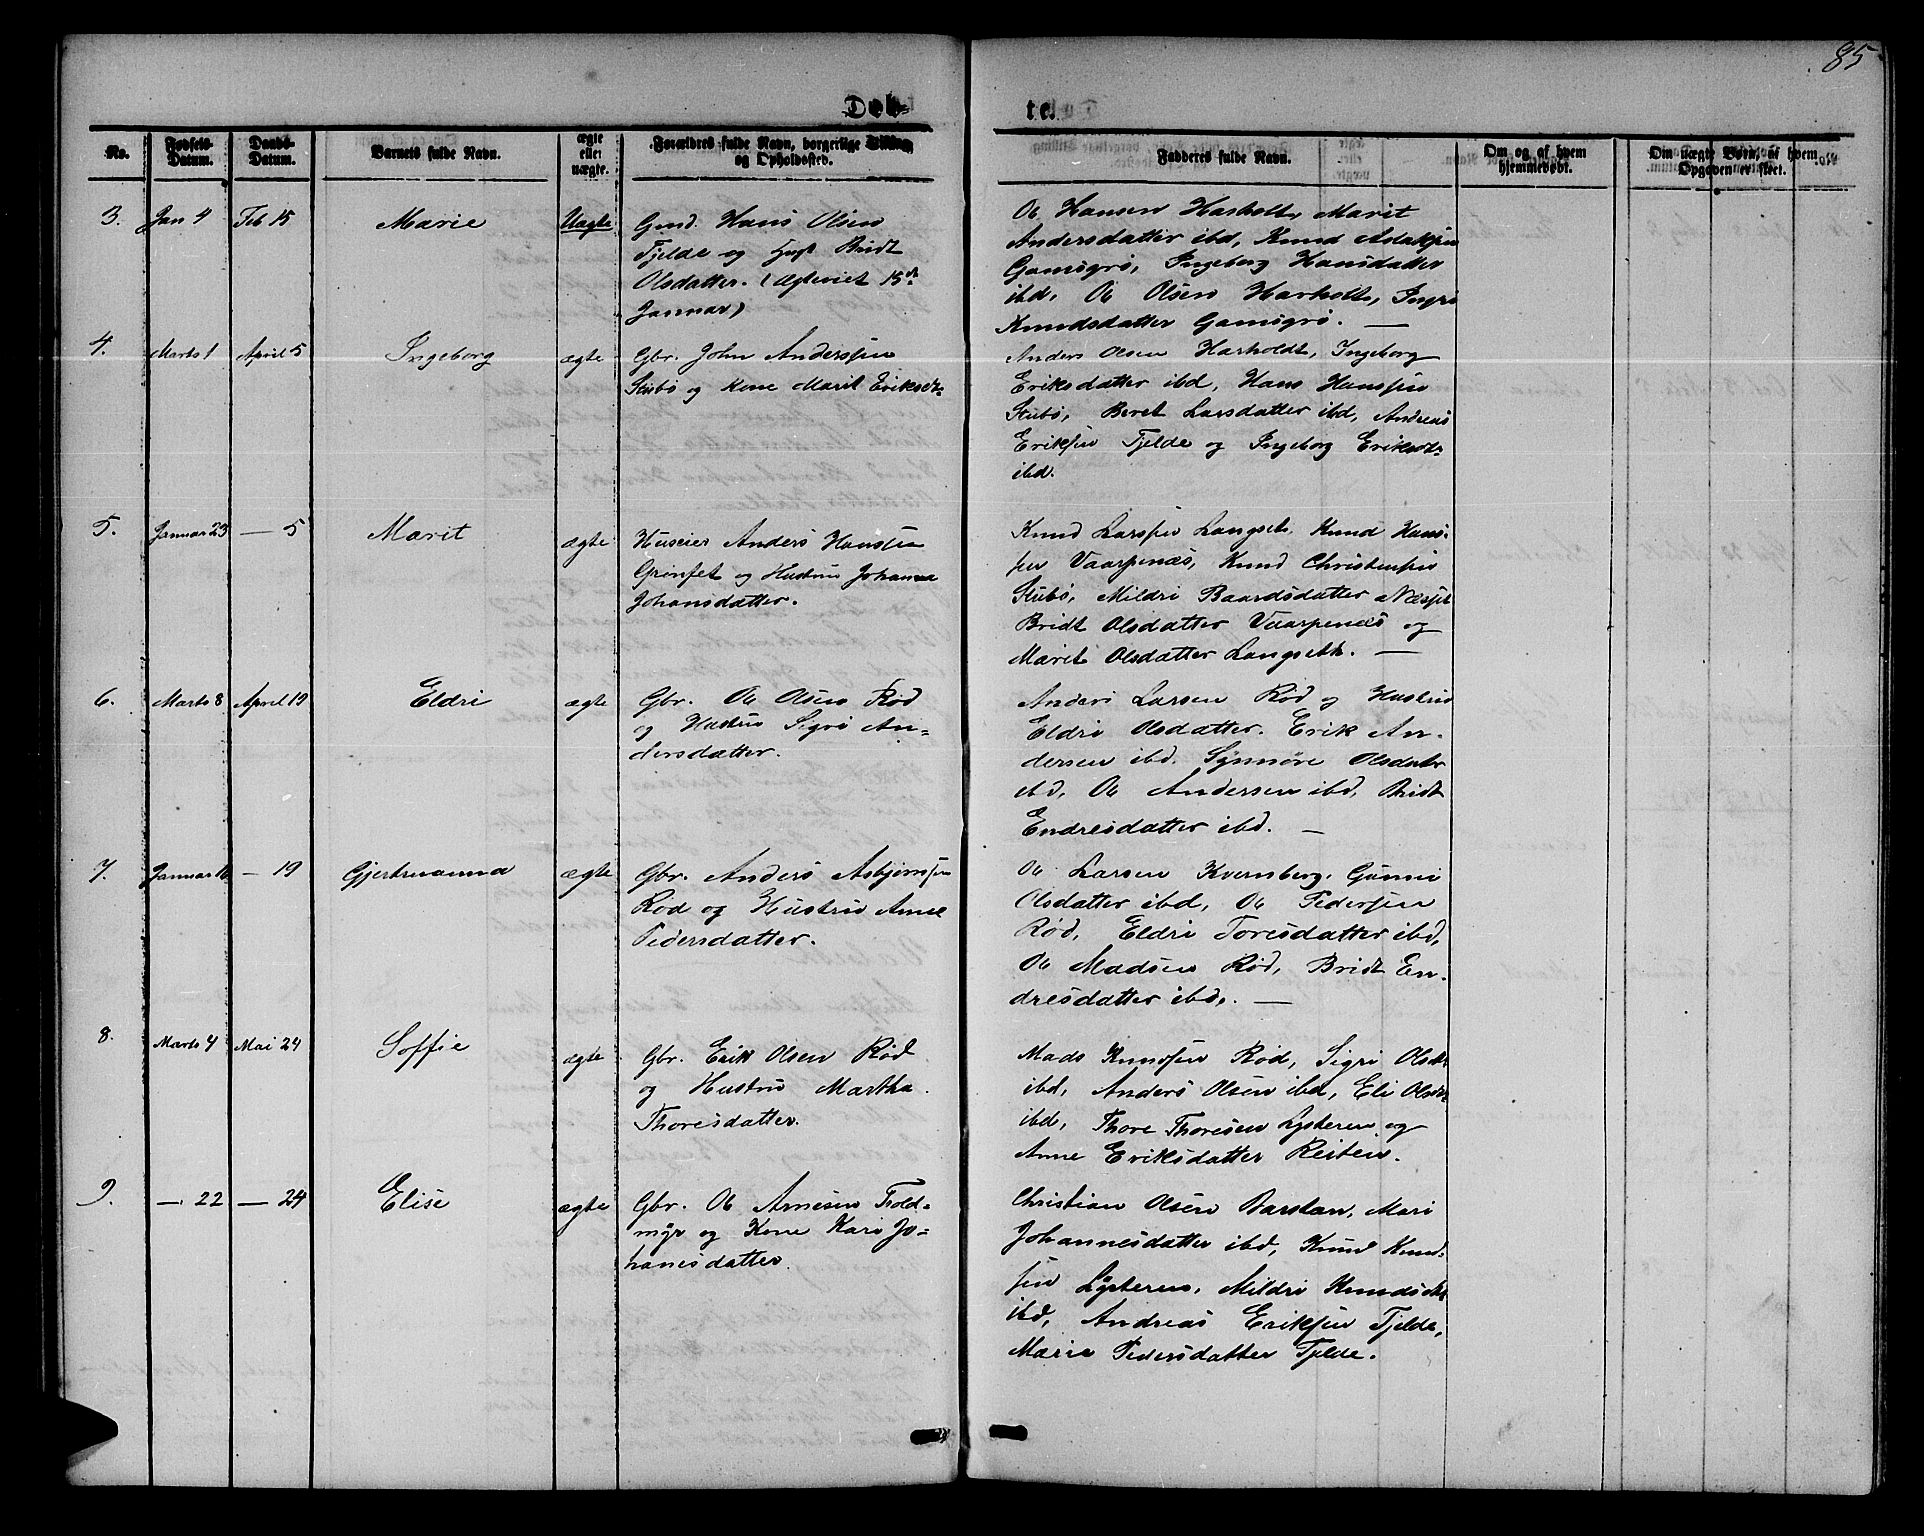 85
Døb-
te.
No.
Fødsels-
Datum.
Daabs-
Datum.
Barnets fulde Navn.
ægte
eller
uægte.
Forældres fulde Navn, borgerlige Stilling
og Opholdssted.
Fadderes fulde Navn.
Om og af hvem
hjemmedøbt.
Om uægte Børn, af hvem
Opgaven er skeet.
3. Jan 4 Feb 15 Marie Uægte
Gmd. Hans Olsen
Tjelde og Bridt
Olsdatter. (Ægteviet 15de
Januar)
Ole Hansen Harholt, Marit
Andersdatter ibd, Knud Aslaksen
Gamsgrø, Ingeborg Hansdatter
ibd, Ole Olsen Harholt, Ingri
Knudsdatter Gamsgrø. —
4. Marts 1 April 5 Ingeborg ægte
Gbr. John Anderssen
Stubø og Kone Marit Eriksdt-
Anders Olsen Harholdt, Ingeborg
Eriksdatter ibd, Hans Hanssen
Stubø, Beret Larsdatter ibd, Andreas
Erikssen Tjelde og Ingeborg Eriksdt-
ibd.
5. Januar 23 — 5 Marit ægte
Huseier Anders Hanssen
Grønset og Hustru Johanna
Johansdatter.
Knud Larssen Langset, Knud Hans-
sen Vaarpenæs, Knud Christenssen
Stubø, Mildri Baardsdatter Næsset
Bridt Olsdatter Vaarpenæs og
Marit Olsdatter Langseth. —
6. Marts 8 April 19 Eldri ægte
Gbr. Ole Olsen Rød
og Hustru Sigri An-
dersdatter.
Anders Larsen Rød og Hustru
Eldri Olsdatter. Erik An-
dersen ibd. Synnøve Olsdatr
ibd, Ole Andersen ibd, Bridt
Endresdatter ibd. —
7. Januar 16 — 19 Gjertruanna ægte
Gbr. Anders Asbjørnssen
Rød og Hustru Anne
Pedersdatter.
Ole Larsen Kvernberg, Gunni
Olsdatter ibd, Ole Pederssen
Rød, Eldri Toresdatter ibd,
Ole Madsen Rød, Bridt En-
dresdatter ibd. —
8. Marts 4 Mai 24 Soffie ægte
Gbr. Erik Olsen Rød
og Hustru Martha
Thoresdatter.
Mads Knudsen Rød, Sigri Olsdtr
ibd, Anders Olsen ibd, Eli Olsdtr
ibd, Thore Thoresen Lysteren og
Anne Eriksdatter Reiten.
9. — 22 — 24 Elise ægte
Gbr. Ole Arnesen Trold-
myr og Kone Kari Jo-
hanesdatter.
Christian Olsen Barstan, Mari
Johannesdatter ibd, Knud Knud-
sen Lysteren, Mildri Knudsdtr
ibd, Andreas Erikssen Tjelde,
Marie Pedersdatter Tjelde.